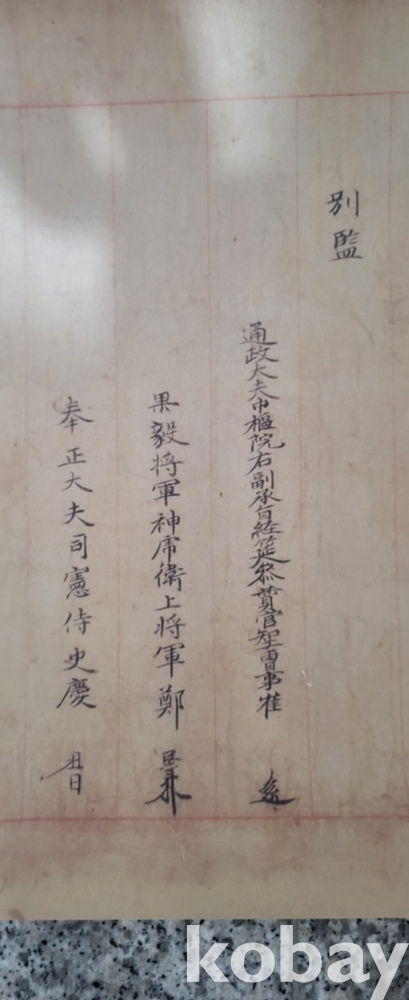 別監
通政大夫中樞院右副承旨経筵叅賛官知工曹事崔
果毅將軍神虎衛上將軍鄭
奉正大夫司憲侍史慶
kobay